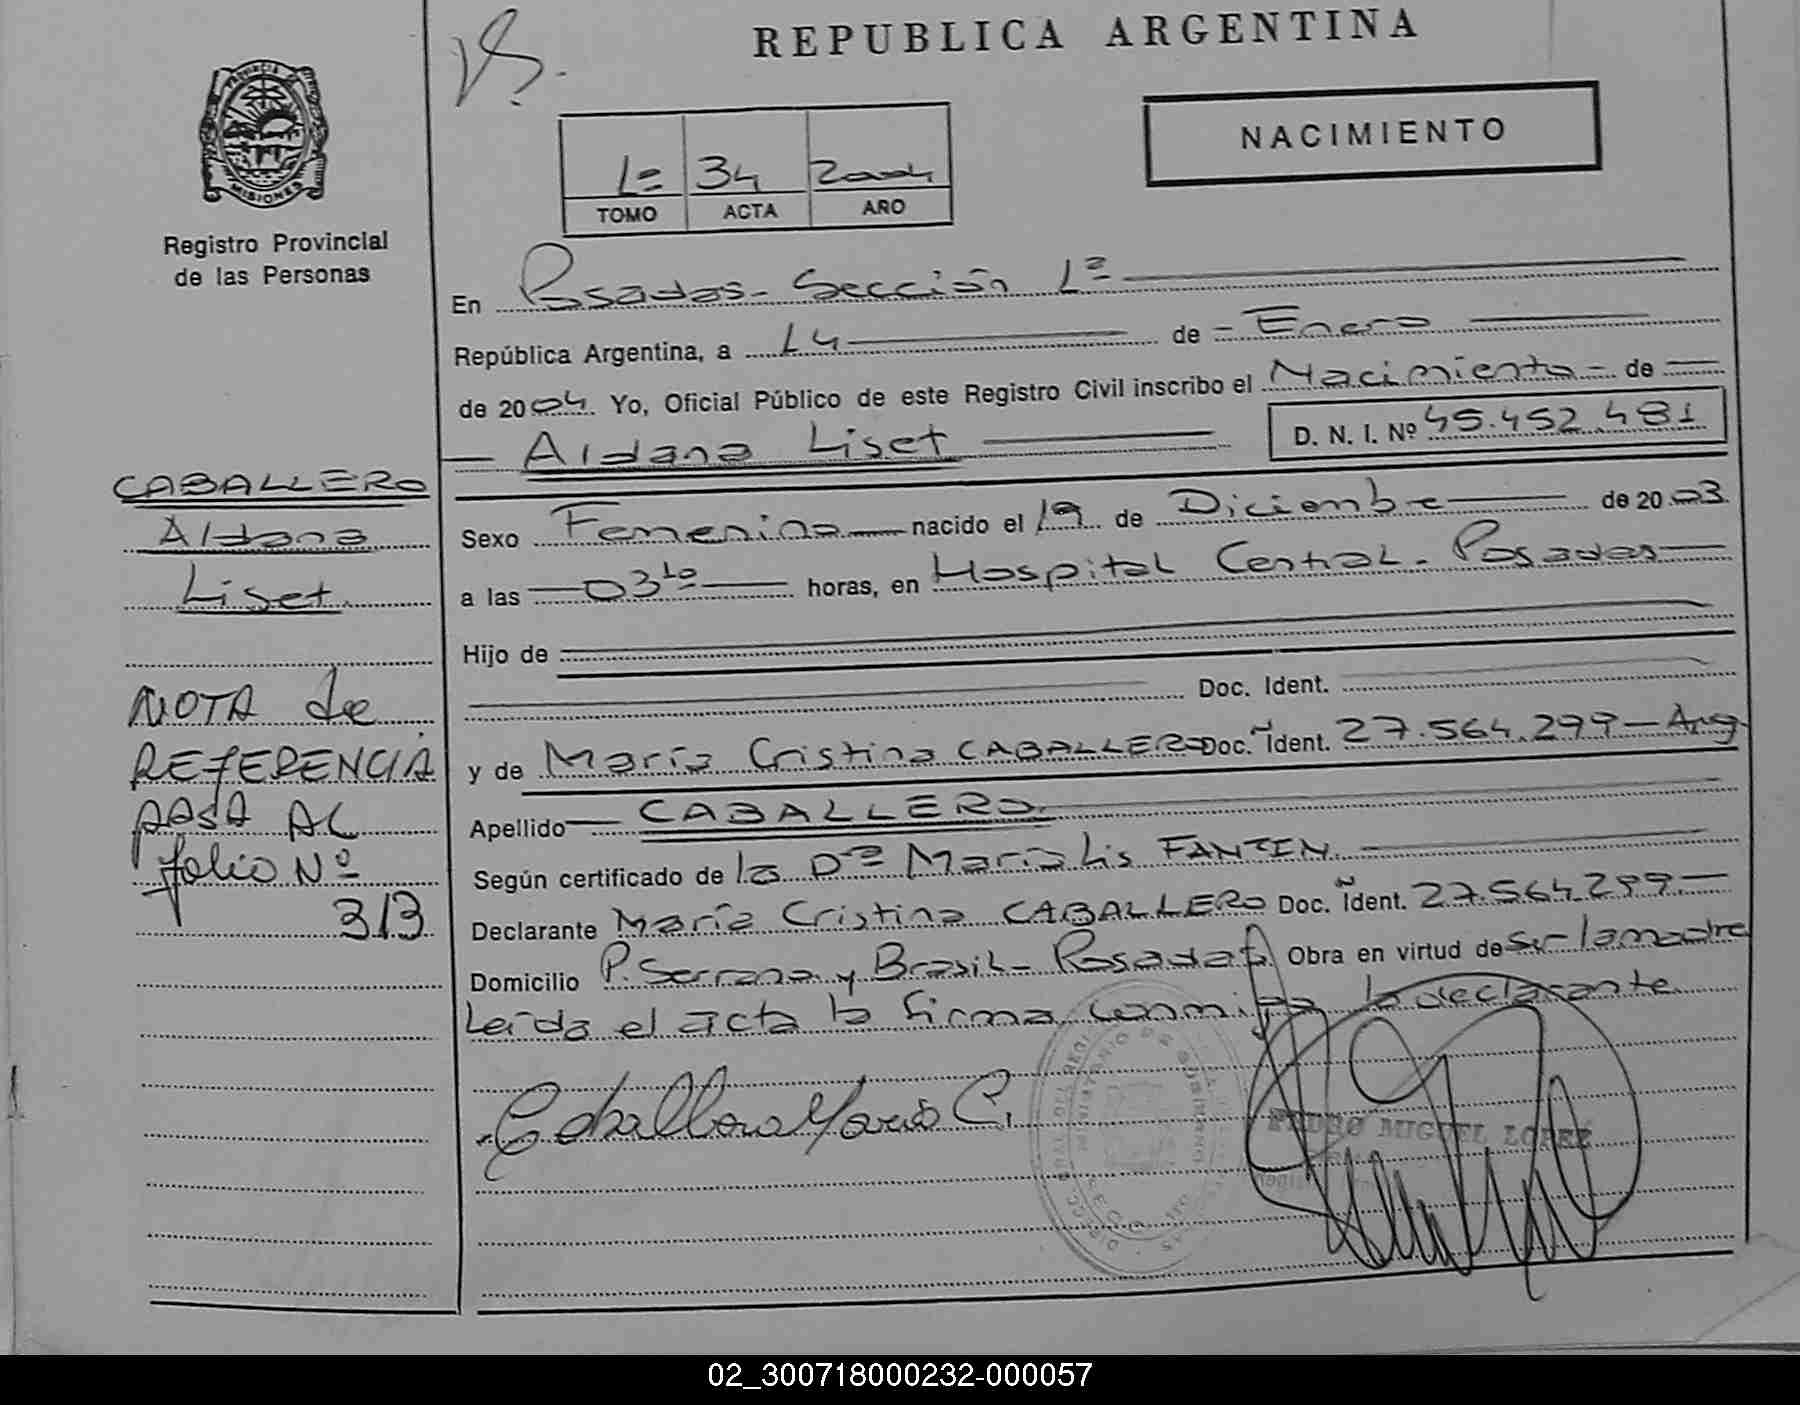 REPUBLICA ARGENTINA
NACIMIENTO
1º 34 2004
TOMO ACTA AÑO
PROVINCIA DE MISIONES
Registro Provincial
de las Personas
En Posadas - Sección 1ª
República Argentina, a 14 de Enero
de 2004 Yo, Oficial Público de este Registro Civil inscribo el Nacimiento - de
Aldana Liset
D. N. I. Nº 45.452.481
CABALLERO
Aldana
Liset
Sexo Femenino nacido el 19 de Diciembre de 2003
a las 03 horas, en Hospital Central - Posadas
Hijo de
Doc. Ident.
y de María Cristina CABALLERO Doc. Ident. 27.564.299 - Arg.
Apellido CABALLERO
Según certificado de la Drª María Lis
Declarante María Cristina CABALLERO Doc. Ident. 27.564.299.-
Domicilio P. Serrano y Brasil - Posadas Obra en virtud de ser la madre
Leída el acta la firma conmigo la declarante
NOTA de
REFERENCIA
PASA AL
folio Nº
313
Caballero María C.
PEDRO MIGUEL LOPEZ
02_300718000232-000057